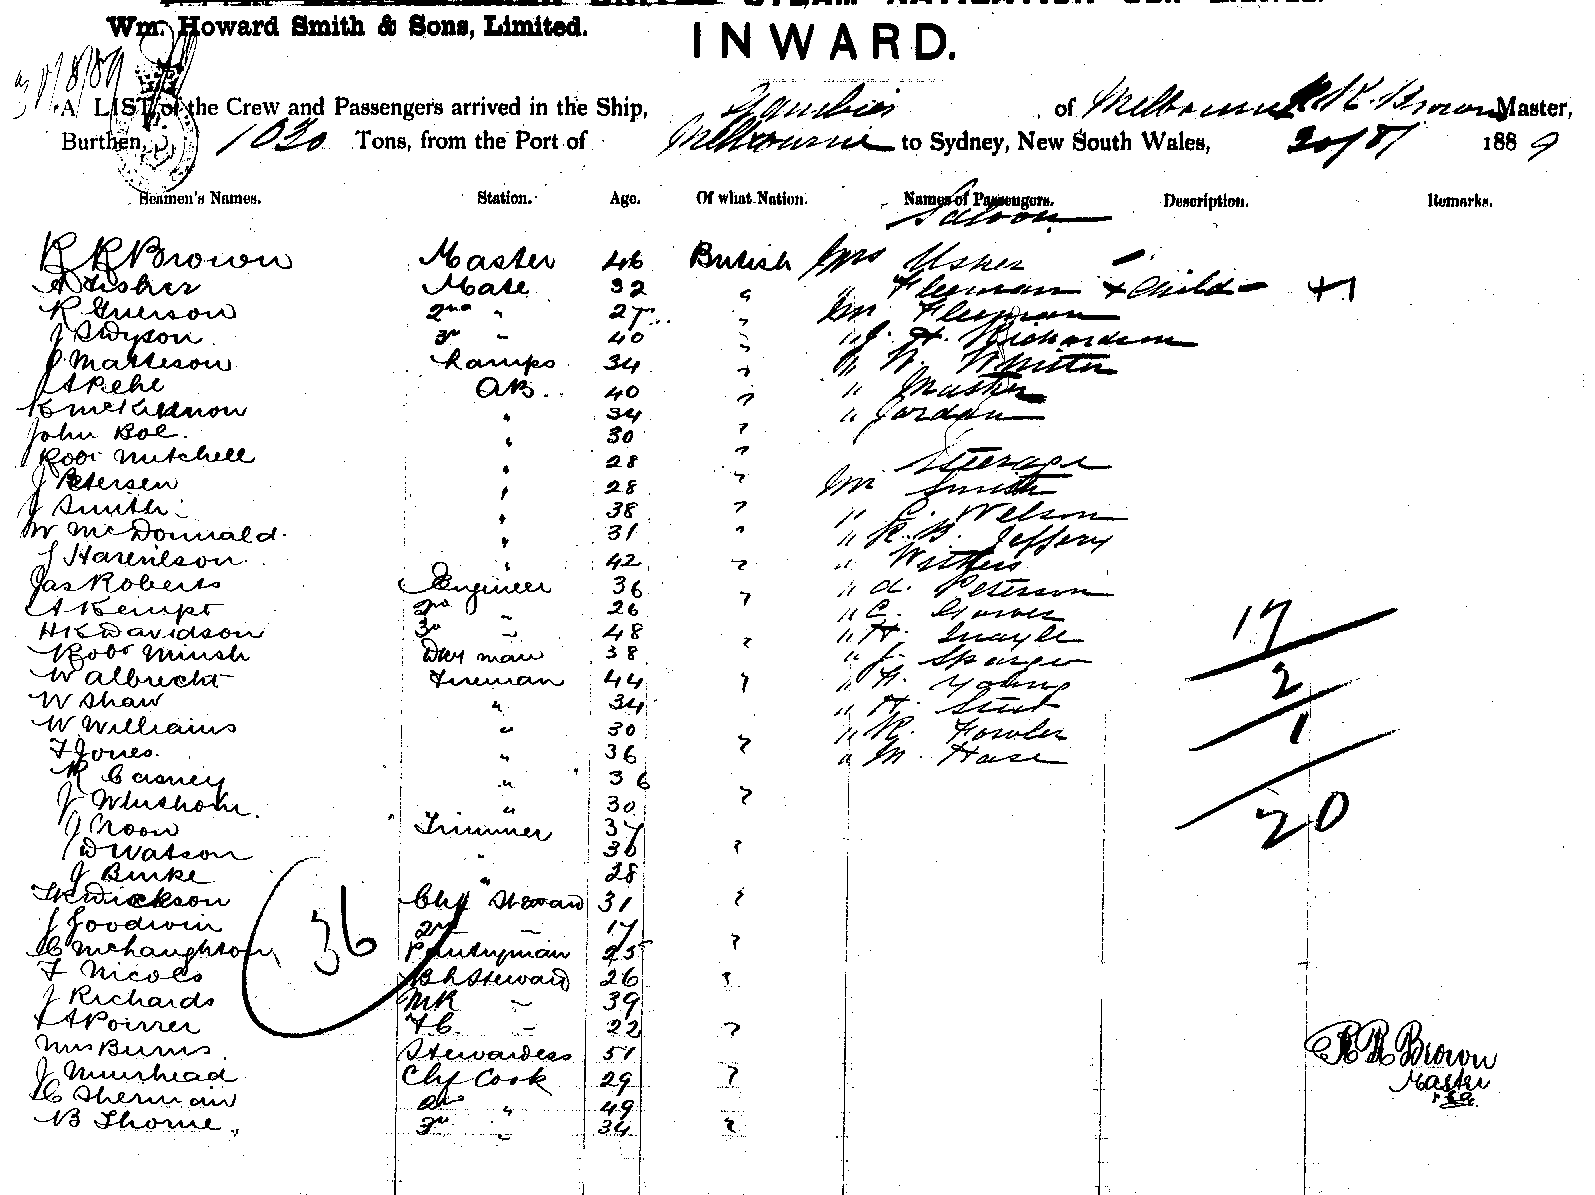 Wm. Howard Smith & Sons, Limited.
INWARD.
A LIST of the Crew and Passengers arrived in the Ship, of Melbourne R K Brown Master,
Burthen, 1030 Tons, from the Port of Melbourne to Sydney, New South Wales, 1889
Seamen's Names. Station. Age. Of what Nation. Names of Passengers. Description. Remarks.
Saloon
R K Brown Master 46 British Mrs Usher
A Fisher Mate 32 " " Fleeman + Child +1
R Grierson 2nd " 27 " Mr Fleeman
J S Dyson 3rd " 40 " " J. H. Richardson
J Matteson Lamps 34 " " W.
AB 40 " "
K McKinnon " 34 " Jordan
John Boe. " 30 "
Robt Mitchell " 28 " Steerage
J Petersen " 28 " Mr Smith
J Smith " 38 " " Welson
W McDonnald " 31 " " R. B. Jeffery
J " 42 " " Withers
Jas Roberts Engineer 36 " " d. Peterson
A Kempt 2nd " 26 " C.
H K Davidson 3rd " 48 " " H. Quayle 17
Robt Day man 38 " J. Spargo
W Albrecht Fireman 44 " " A. Young 2
W Shaw " 34 " H.
W Williams " 30 " R. Fowler 1
F Jones. " 36 " " M. Hase
R Casney " 36
J " 30 " 20
J Noon Trimmer 37
D Watson " 36 "
J Burke " 28
Dickson Chf Steward 31 "
J Goodwin 2nd " 17
C McNaughton Pantryman 25 "
36
F Nicols B R Steward 26 "
J Richards MR " 39
A Poirrer F C " 22 " R K Brown
Mrs Burns Stewardess 51
J Muirhead Chf Cook 29 " Master
C Sherman 2nd " 49
B Thorne 3rd " 34 "